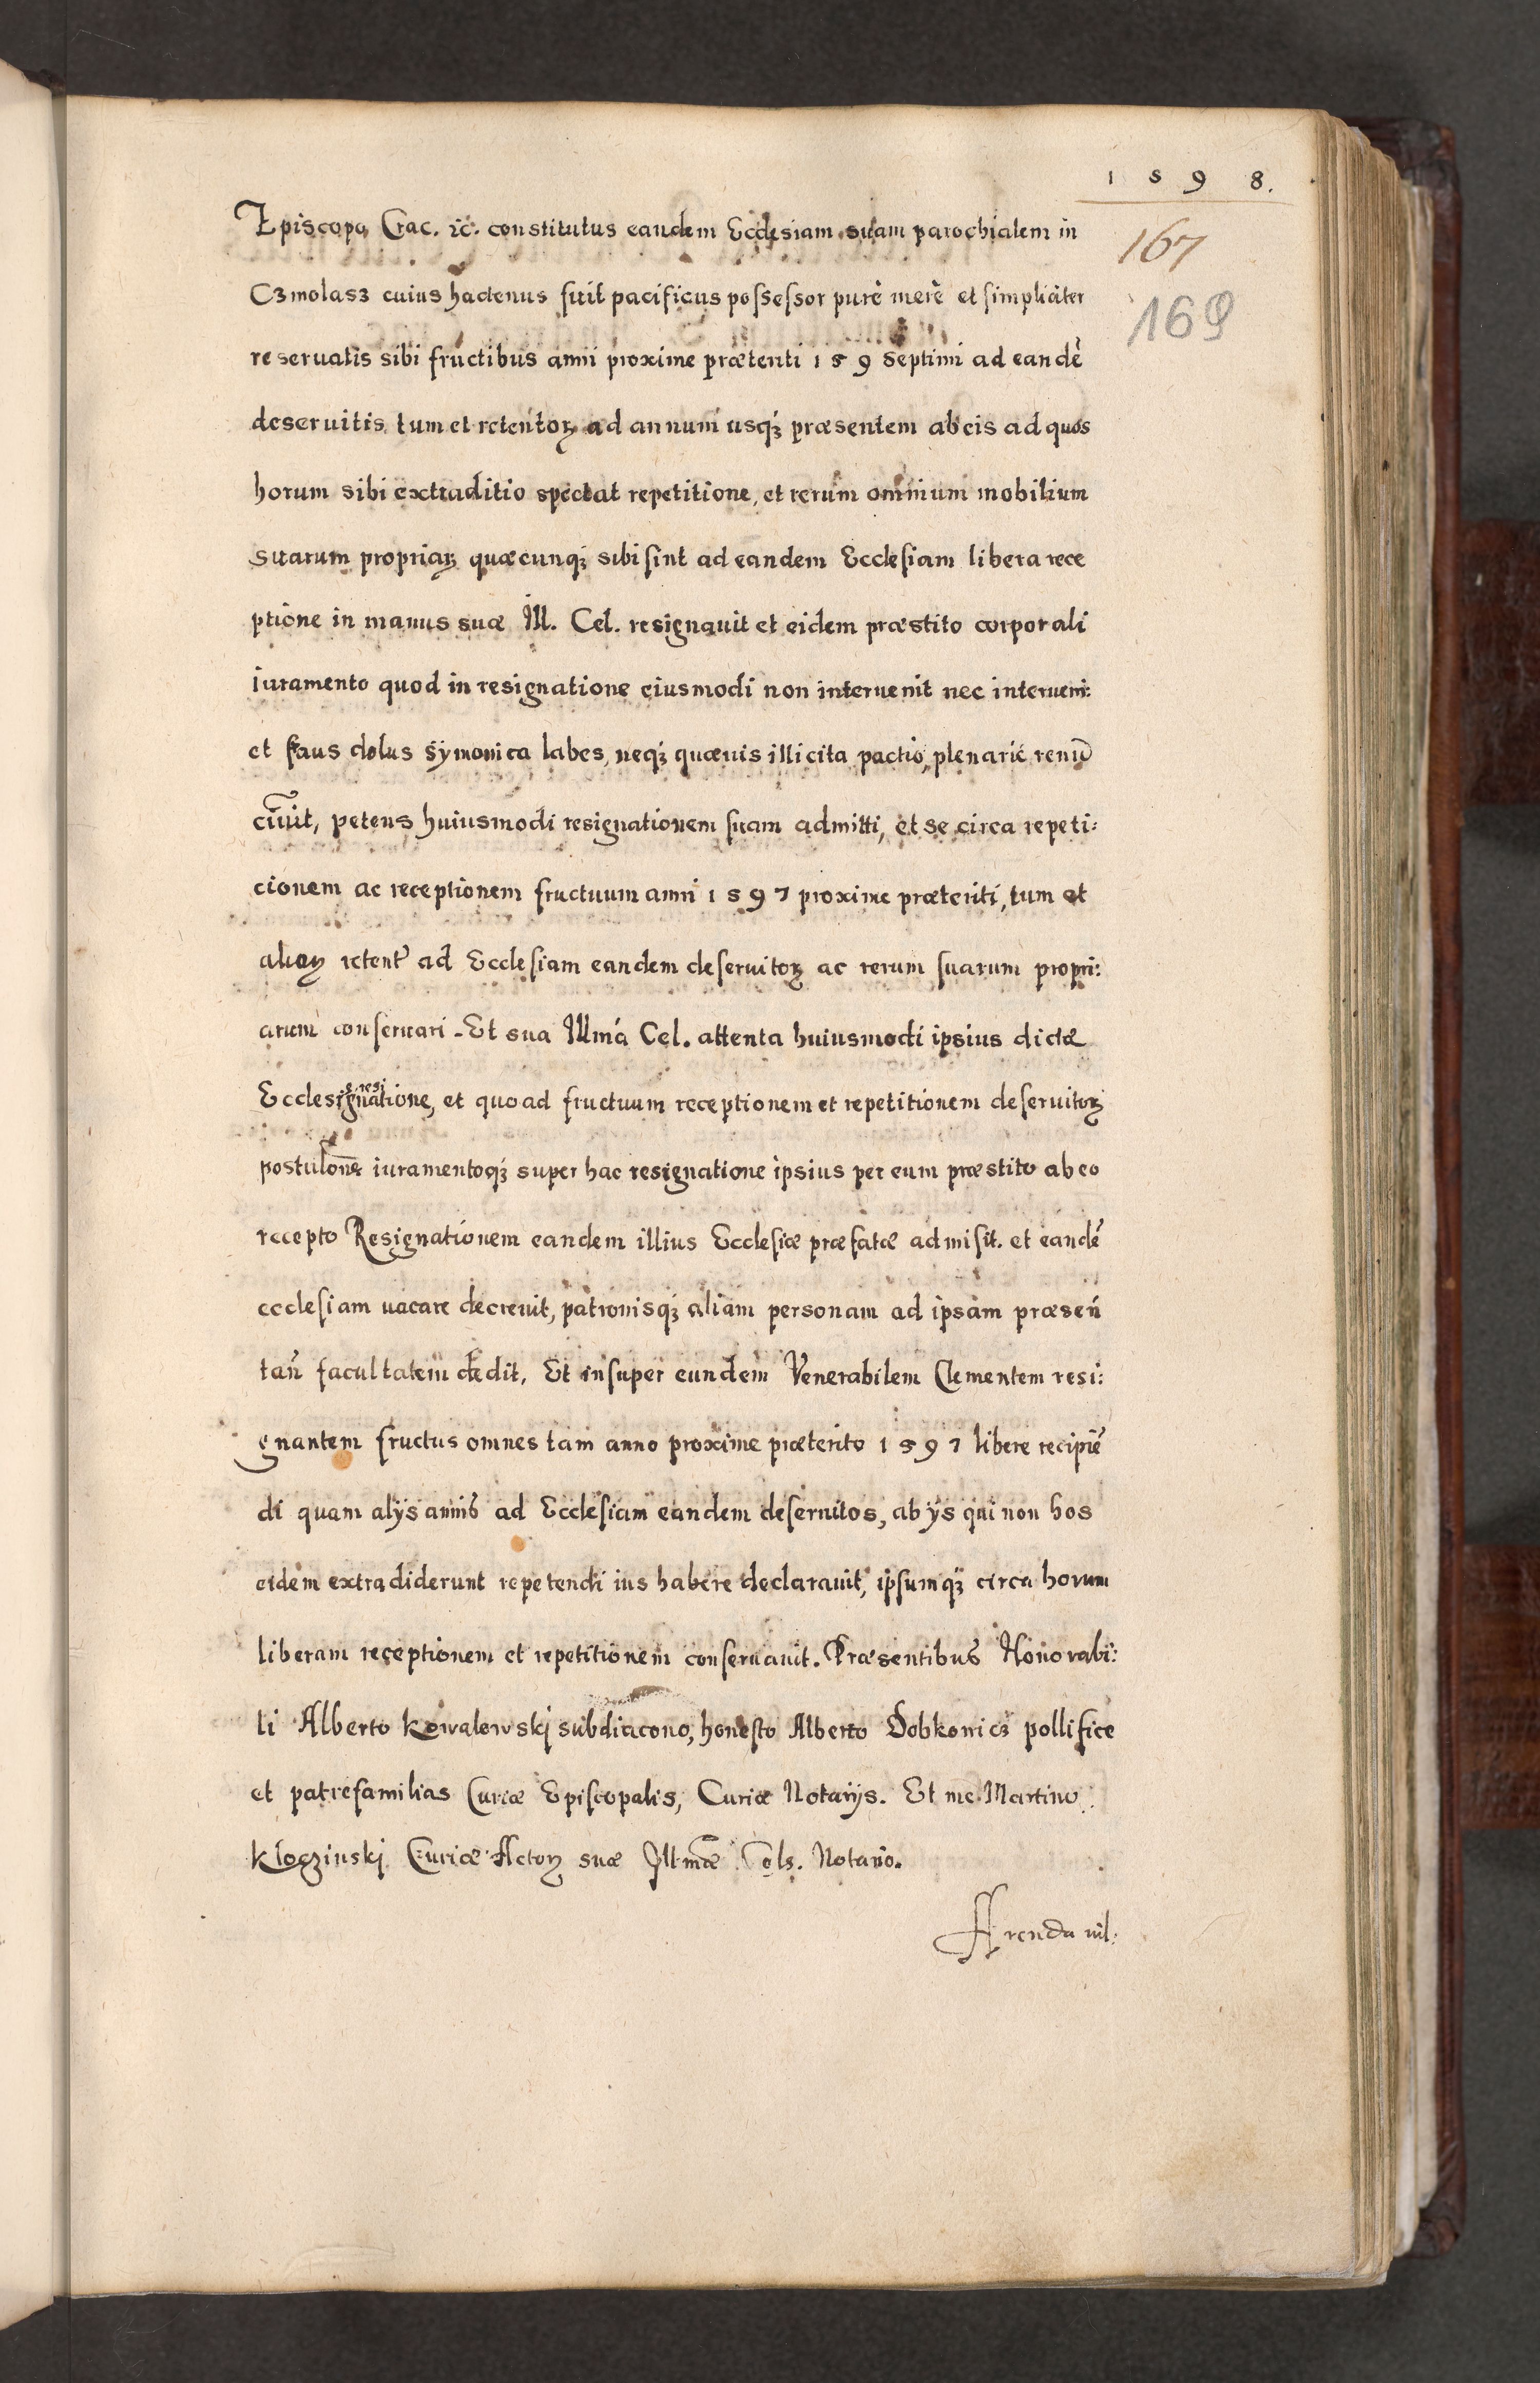 1 5 9 8.
167
169
Episcopo Crac. ꝛc. constitutus eandem Ecclesiam suam parochialem in
Czmolasz cuius hactenus fuit pacificus possessor purè merè et simpliciter
reseruatis sibi fructibus anni proxime præteriti 1 5 9 septimi ad eandē
deseruitis tum et retentoꝝ ad annum usqꝫ præsentem ab eis ad quos
horum sibi extraditio spectat repetitione, et rerum omnium mobilium
suarum propriaꝝ quæcunqꝫ sibi sint ad eandem Ecclesiam libera rece
ptione in manus suæ Ill. Cel. resignauit et eidem præstito corporali
iuramento quod in resignatione eiusmodi non interuenit nec interueni:
et fraus dolus symonica labes, neqꝫ quæuis illicita pactio, plenariè renū
ciauit, petens huiusmodi resignationem suam admitti, et se circa repeti:
cionem ac receptionem fructuum anni 1 5 9 7 proxime præteriti, tum et
alioꝝ retent̃ ad Ecclesiam eandem deseruitoꝝ ac rerum suarum propri:
arum conseruari - Et sua Illma Cel. attenta huiusmodi ipsius dictæ
Eccles resignatione, et quoad fructuum receptionem et repetitionem deseruitoꝝ
postulone iuramentoqꝫ super hac resignatione ipsius per eum præstito ab eo
recepto Resignationem eandem illius Ecclesiæ præfatæ admisit. et eandē
ecclesiam uacare decreuit, patronisqꝫ aliam personam ad ipsam præsen̄
tan̄ facultatem dedit. Et insuper eundem Venerabilem Clementem resi:
gnantem fructus omnes tam anno proxime præterito 1 5 9 7 libere recipiē
di quam alijs annis ad Ecclesiam eandem deseruitos, ab ijs qui non hos
eidem extradiderunt repetendi ius habere declarauit, ipsumqꝫ circa horum
liberam receptionem et repetitionem conseruauit. Præsentibus Honorabi:
li Alberto Kowalowskj subdiacono, honesto Alberto Dobkowicz pollifice
et patrefamilias Curiæ Episcopalis, Curiæ Notarijs. Et me Martino
Kloczinskj Curiæ Actoꝝ suæ Illmæ Cels. Notario.
Arenda uil: